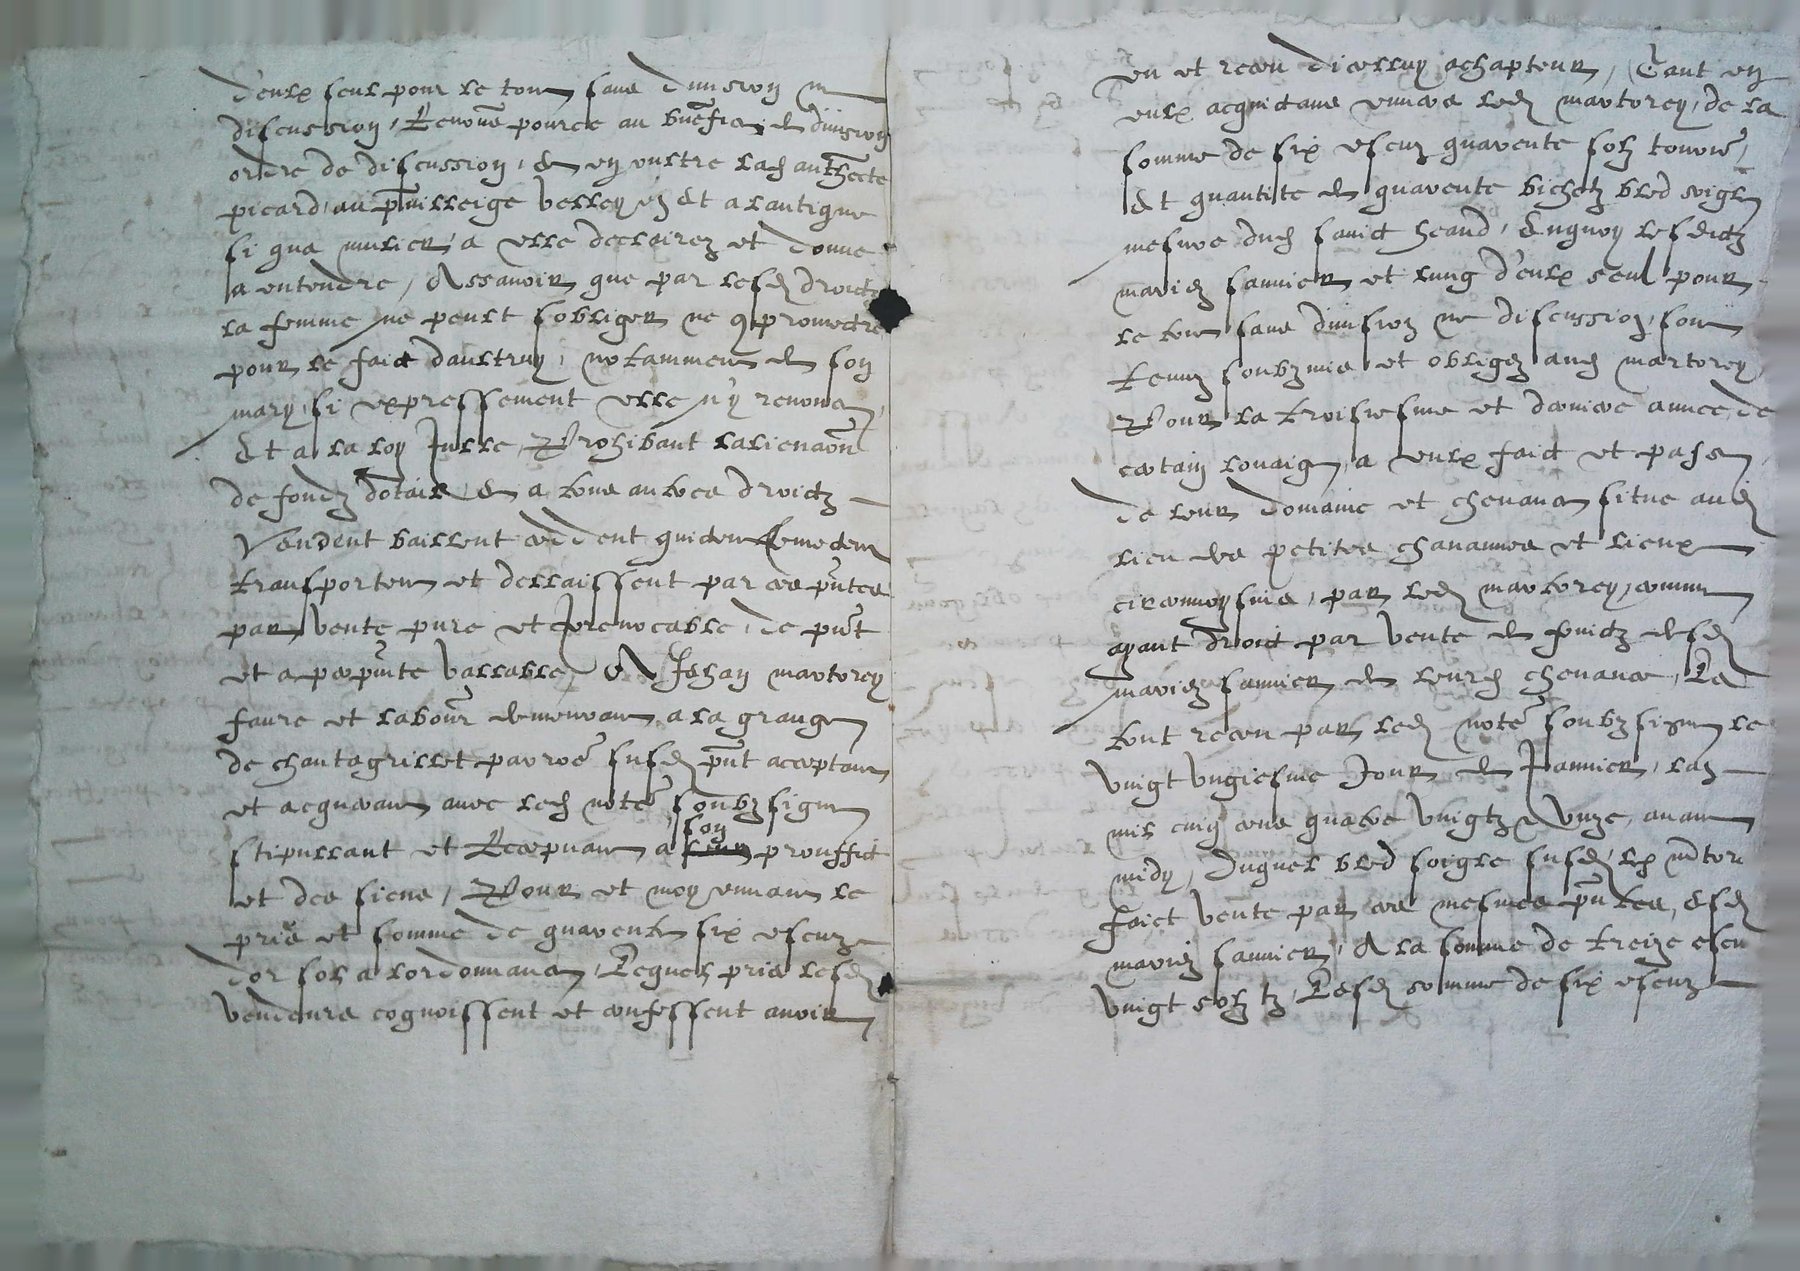 d'eulx seul pour le tout sans division ne
discussion, Renonces pource au bnefice de division
ordre de discussion, & en oultre lad authecte
picard, au pruilleige velleyen Et a lautique
si qua mulier, a elle declairez et donne
a entendre, Assavoir que par lesd droictz
la femme ne peult sobliger ne promectre
pour le faict daultruy, notamment de son
mary, si expressement elle n'y renonce,
Et a la loy Julle, Prohibant lalienaon
de fondz dotail, & a tous autres droictz
Vendent baillent ceddent quictent Remectent
transportent et dellaissent par ces pntes
par vente pure et Irrevocable, de pnt
et a perpnite vallable, A Jehan martorey
faure et labour demeurant a la grange
de chantagrillet parroe susd pnt acceptant
et acquerant avec led note soubzsigne
stipullant et Recepvant a son prouffict
et des siens, Pour et moyennant le
pris et somme de quarente six escuz
dor sol a lordonnance, Lequel pris lesd
vendeurs cognoissent et confessent avoir
eu et receu dicelluy achapteur, Tant en
eulx acquictans envers led martorey, de la
somme de six escuz quarente solz tourn,
Et quantite de quarente bichetz bled soigle
mesure dud sainct heand, Enquoy lesdictz
mariez sannier et lung d'eulx seul pour
le tout sans division ne discussion, sont
tenuz soubzmis et obligez aud martorey
Pour la troisiesme et derniere annee de
certain louaige, a eulx faict et passe
de leur domaine et chevance situe aud
lieu des petites chanannes et lieux
circonvoysins, par led martorey, comme
ayant droict par vente de fruictz desd
mariez sannier de leurd chevance, Le
tout receu par led note soubzsigne le
vingt ungiesme Jour de Janvier, lan
mil cinq cens quatre vingtz & unze, avant
midy, Duquel bled soigle susd, led mtorey
faict vente par ces mesmes pntes, esd
mariez sannier, A la somme de treize escuz
vingt solz tz, Lesd somme de six escuz